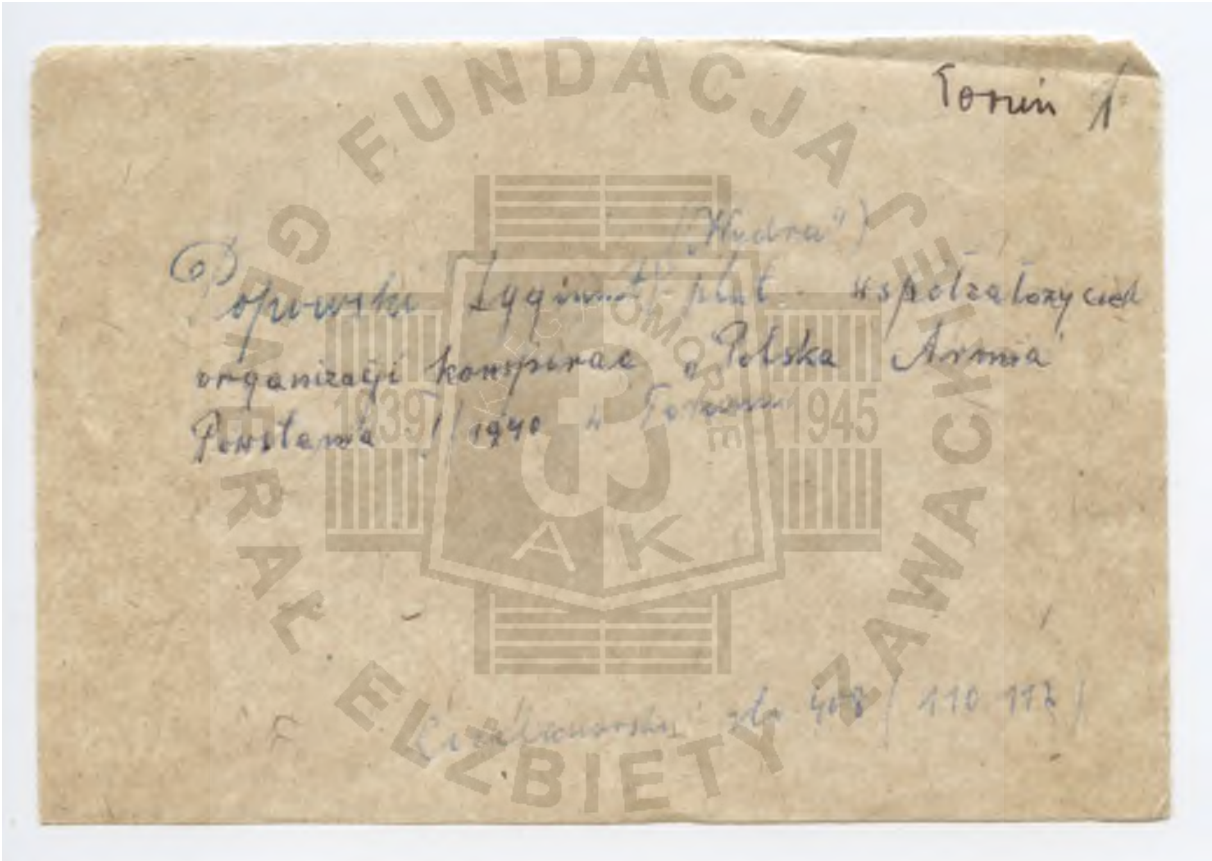 Toruń 1
("Wydra")
Popowski Zygmunt plut. współzałożyciel
organizacji konspirac „Polska Armia
Powstania" II 1940 w Toruniu
str 408 (110 117)
FUNDACJA GENERAŁ ELŻBIETY ZAWACKIEJ
POMORZE
1939 1945
AK